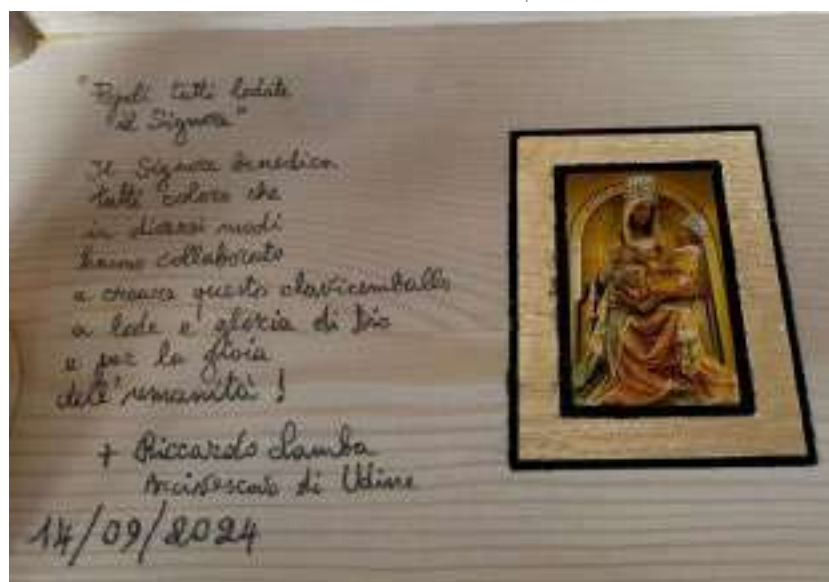 "Popoli tutti lodate
il Signore"
Il Signore benedica
tutti coloro che
in diversi modi
hanno collaborato
a creare questo clavicembalo
a lode e gloria di Dio
e per la gioia
dell'umanità !
+ Riccardo Lamba
Arcivescovo di Udine
14/09/2024